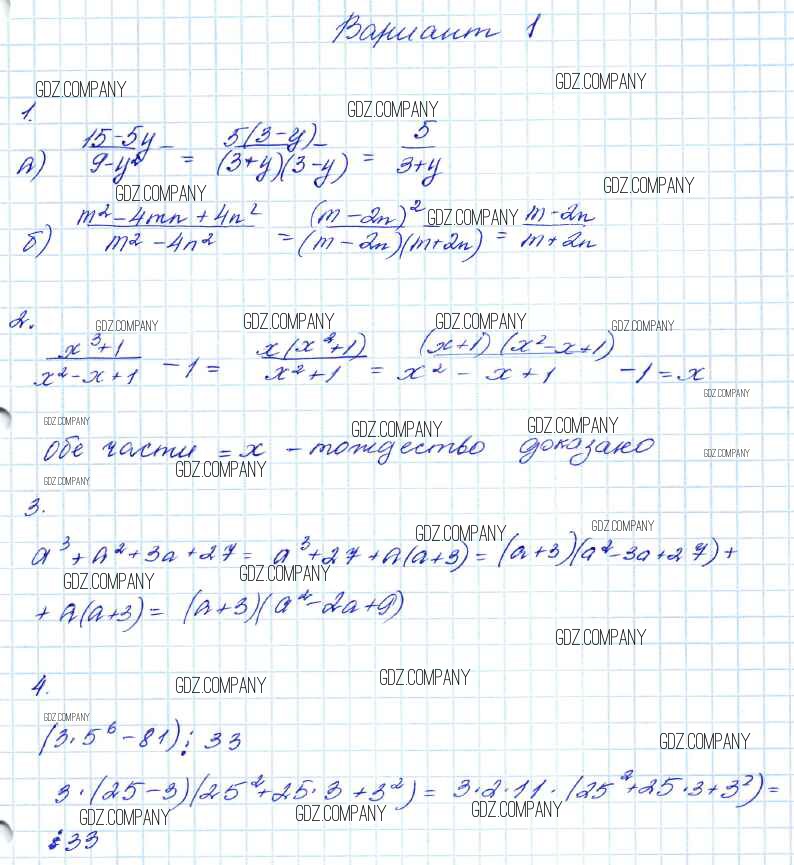 Вариант 1
GDZ.COMPANY GDZ.COMPANY
1. GDZ.COMPANY
а) (15-5y)/(9-y²) = 5(3-y)/((3+y)(3-y)) = 5/(3+y)
GDZ.COMPANY GDZ.COMPANY
б) (m²-4mn+4n²)/(m²-4n²) = (m-2n)²/((m-2n)(m+2n)) = (m-2n)/(m+2n)
GDZ.COMPANY
2. GDZ.COMPANY GDZ.COMPANY GDZ.COMPANY GDZ.COMPANY
(x³+1)/(x²-x+1) -1 = x(x²+1)/(x²+1) = (x+1)(x²-x+1)/(x²-x+1) -1 = x
GDZ.COMPANY
GDZ.COMPANY GDZ.COMPANY GDZ.COMPANY
Обе части = x - тождество доказано
GDZ.COMPANY
GDZ.COMPANY GDZ.COMPANY
3.
GDZ.COMPANY GDZ.COMPANY
a³+a²+3a+27 = a³+27+a(a+3) = (a+3)(a²-3a+27)+
GDZ.COMPANY GDZ.COMPANY
+a(a+3) = (a+3)(a²-2a+9)
GDZ.COMPANY
4. GDZ.COMPANY GDZ.COMPANY
GDZ.COMPANY
(3·5⁶-81)⋮33
GDZ.COMPANY
3·(25-3)(25²+25·3+3²) = 3·2·11·(25²+25·3+3²) =
GDZ.COMPANY GDZ.COMPANY GDZ.COMPANY
⋮33